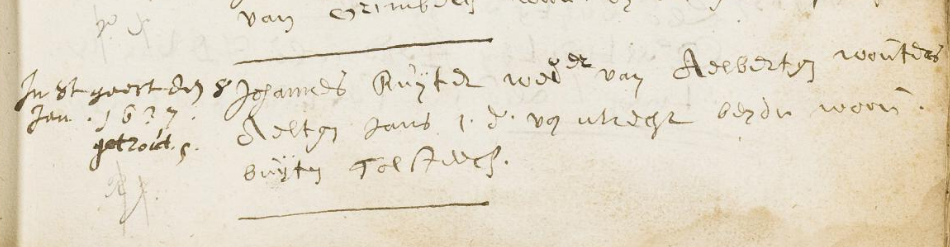 van
In St geert den 8
Jan. 1637.
getroút.
Johannes Ruyter wedr van Aelbertgen wouters
Aeltgen Jans j. d. van utrecht beyde woon.
buyten